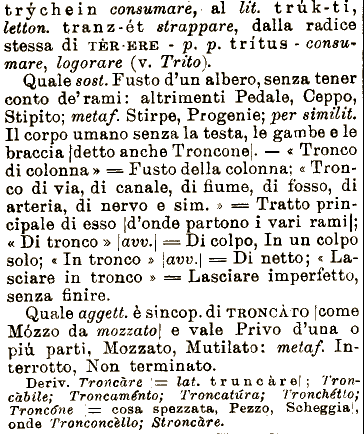 trýchein consumare, al lit. trúk-ti,
letton. tranz-ét strappare, dalla radice
stessa di TÈR-ERE - p. p. trítus - consu-
mare, logorare (v. Trito).
Quale sost. Fusto d'un albero, senza tener
conto de' rami: altrimenti Pedale, Ceppo,
Stipito; metaf. Stirpe, Progenie; per similit.
Il corpo umano senza la testa, le gambe e le
braccia |detto anche Troncone|. — « Tronco
di colonna » = Fusto della colonna; « Tron-
co di via, di canale, di fiume, di fosso, di
arteria, di nervo e sim. » = Tratto prin-
cipale di esso |d'onde partono i vari rami|;
« Di tronco » |avv.| = Di colpo, In un colpo
solo; « In tronco » |avv.| = Di netto; « La-
sciare in tronco » = Lasciare imperfetto,
senza finire.
Quale aggett. è sincop. di TRONCÀTO |come
Mózzo da mozzato| e vale Privo d'una o
più parti, Mozzato, Mutilato: metaf. In-
terrotto, Non terminato.
Deriv. Troncàre |= lat. truncàre|; Tron-
càbile; Troncaménto; Troncatúra; Tronchétto;
Troncóne |= cosa spezzata, Pezzo, Scheggia|,
onde Tronconcèllo; Stroncàre.